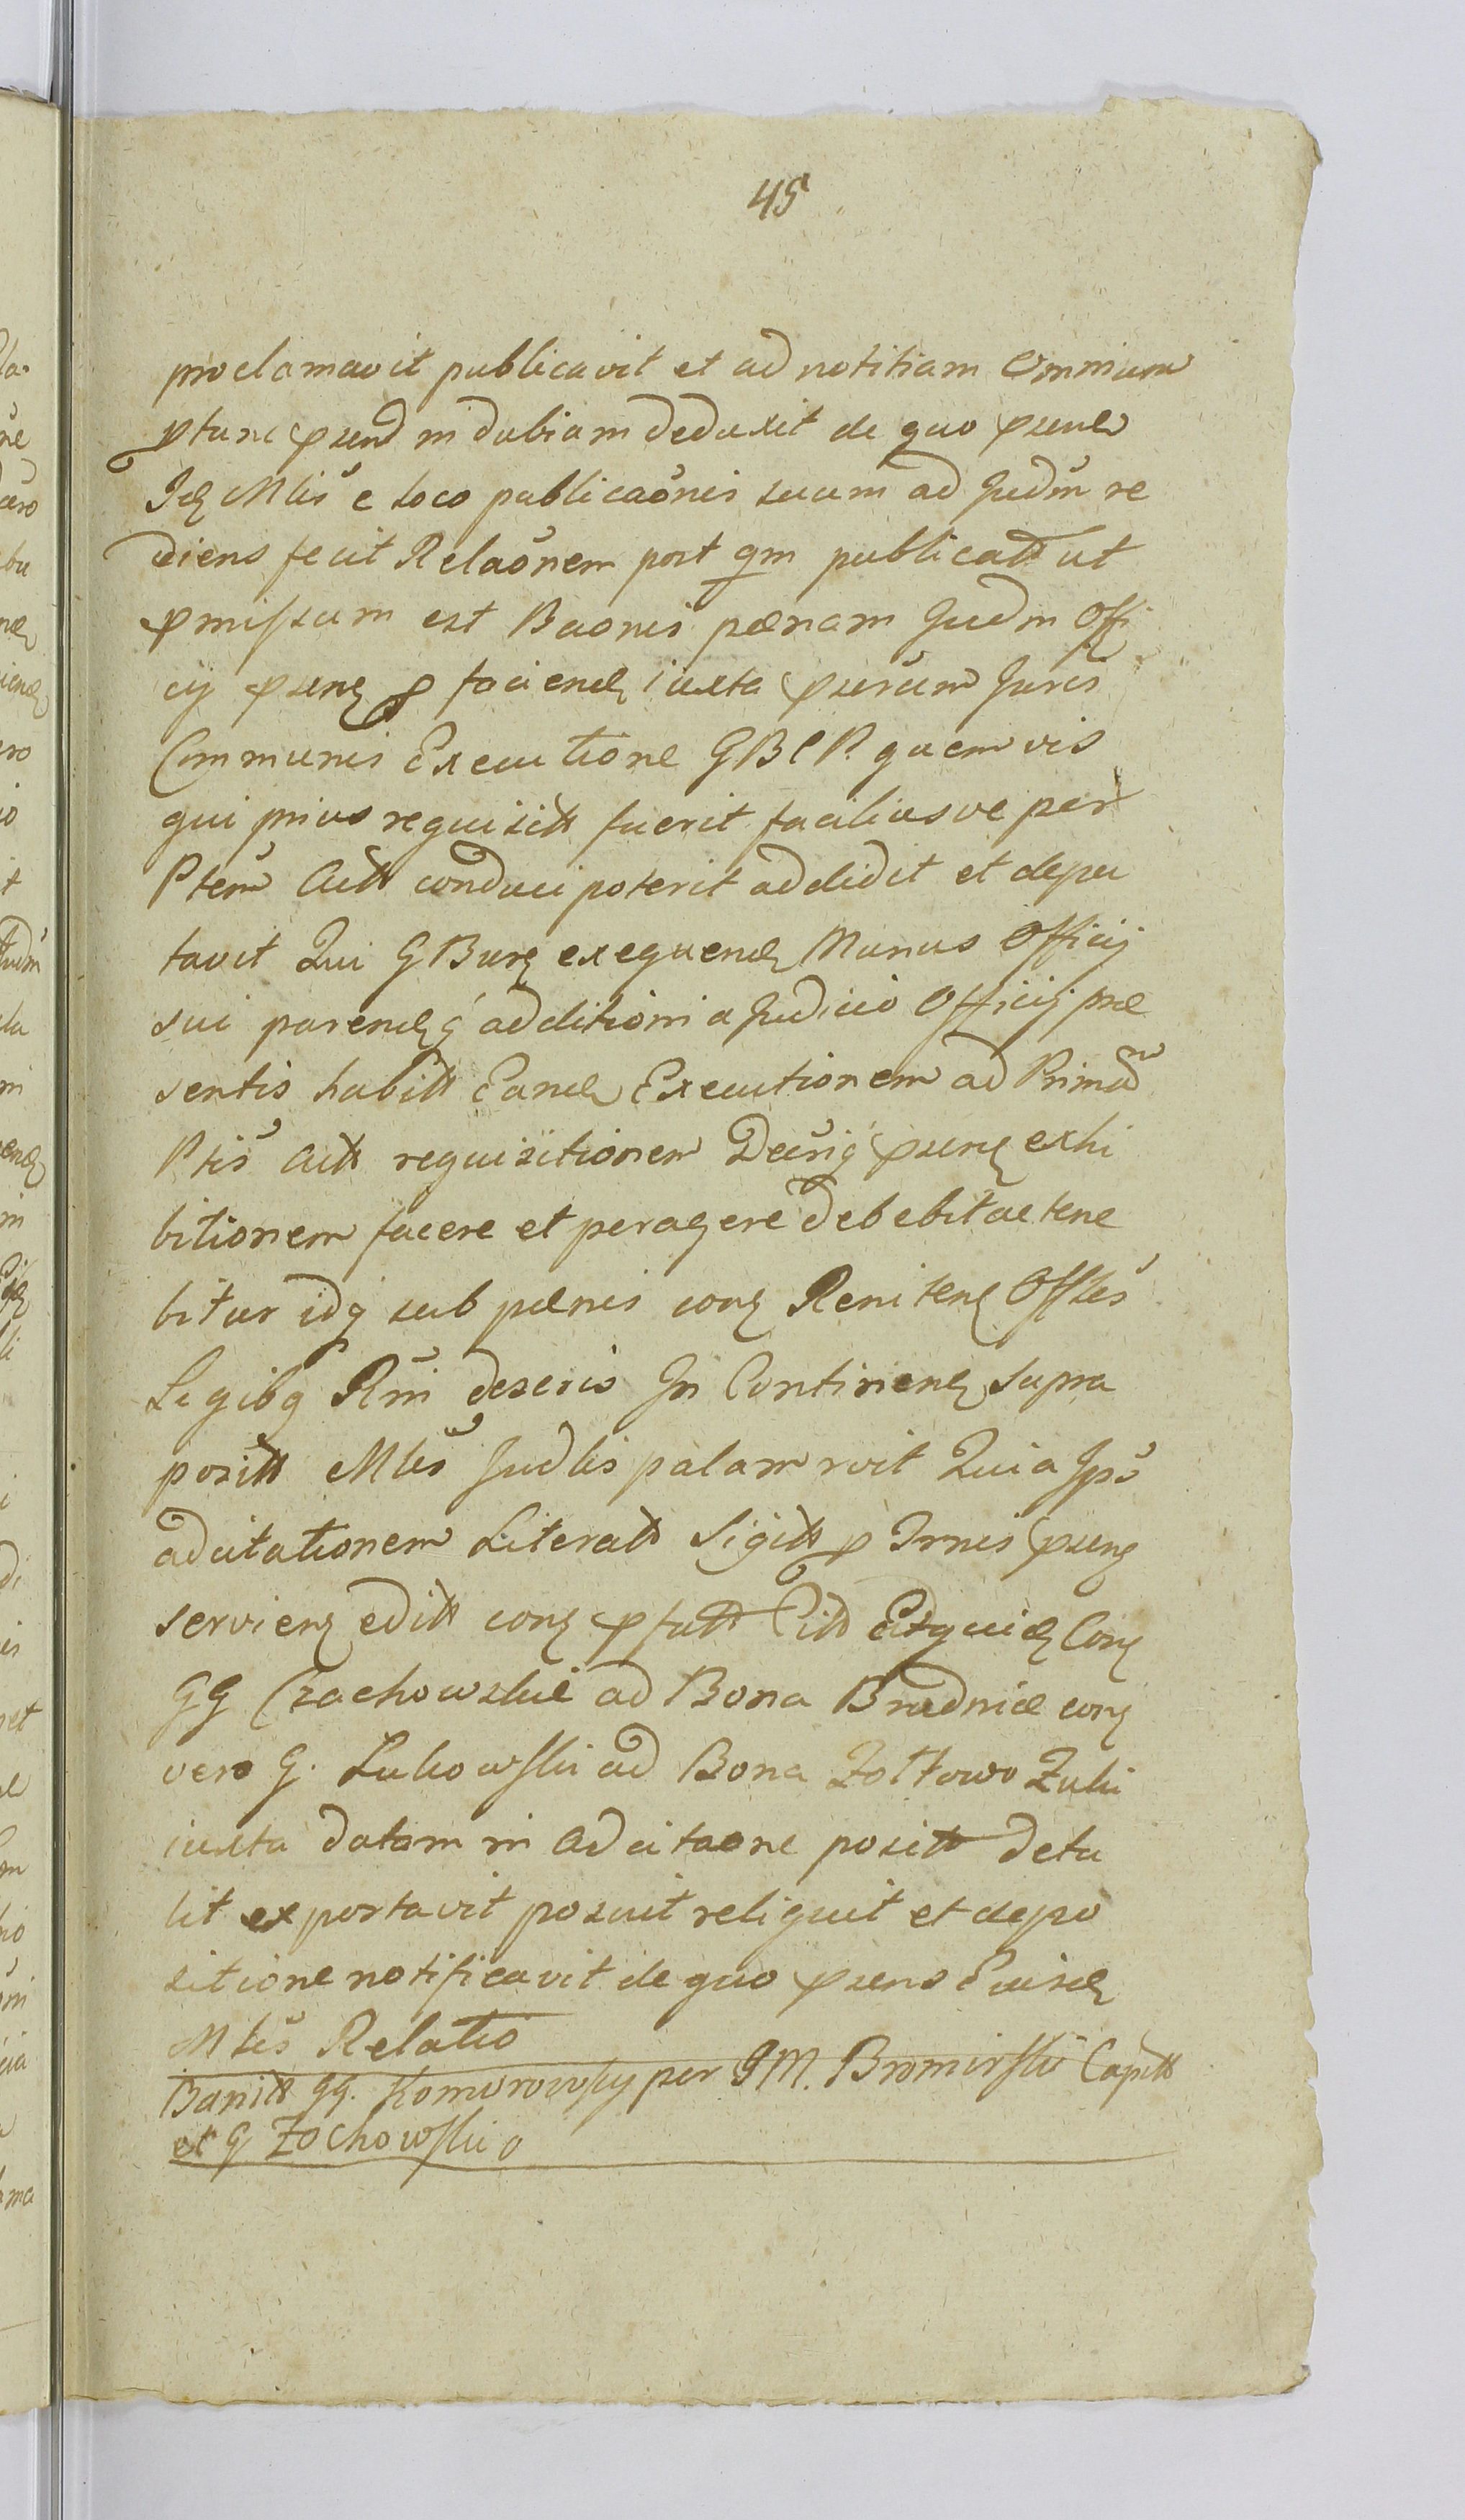 45
proclamavit publicavit et ad notitiam omnium
ptunc psend indubiam deduxit de quo psens
Idz Mlis e loco publicaõnis suum ad Judm re
diens fecit Relaõnem post qm publicatt ut
pmissum est Baonis pœnam Judm Offi
cy psenz p faciendz iuxta psersum Juris
Communis Executione GBCP. quemvis
qui prius requisitt fuerit faciliusve per
Ptem Actt conduci poterit addidit et depu
tavit Qui GBurz exequendz Munus Officij
sui parendzq additioni a Judicio Officij præ
sentis habitt Eandz Executionem ad Primam
Ptis Actt requisitionem Decriq psenz exhi
bitionem facere et peragere debebit ac tene
bitur idq sub pœnis conz Renitenz Offles
Legibq Rni descris In Continendz supra
positt Mlis Judlis palam rvit Quia Ipse
adcitationem Literatt Sigitt p Irnis psenz
servienz editt conz pfatt Citt Etquidz Conz
GG Czachowskie ad Bona Brudnice conz
vero G. Lukowski ad Bona Zołtowo Żuki
iuxta datam in adcitaone positt detu
lit exportavit posuit reliquit et depo
sitione notificavit de quo psens Euisdz
Mlis Relatio
Banitt GG. Komorowsky per GM. Bromirski Capitt
et G Zochowski o